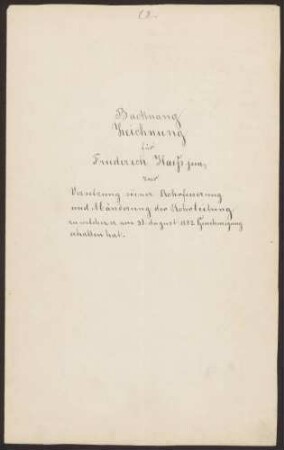 Backnang
Zeichnung
für
Friederich Kaeß jun,
zur
Benützung seiner Rohrfeuerung
und Abänderung der Rohrleitung
zu welcher er vom 31. August 1882 Genehmigung
erhalten hat.